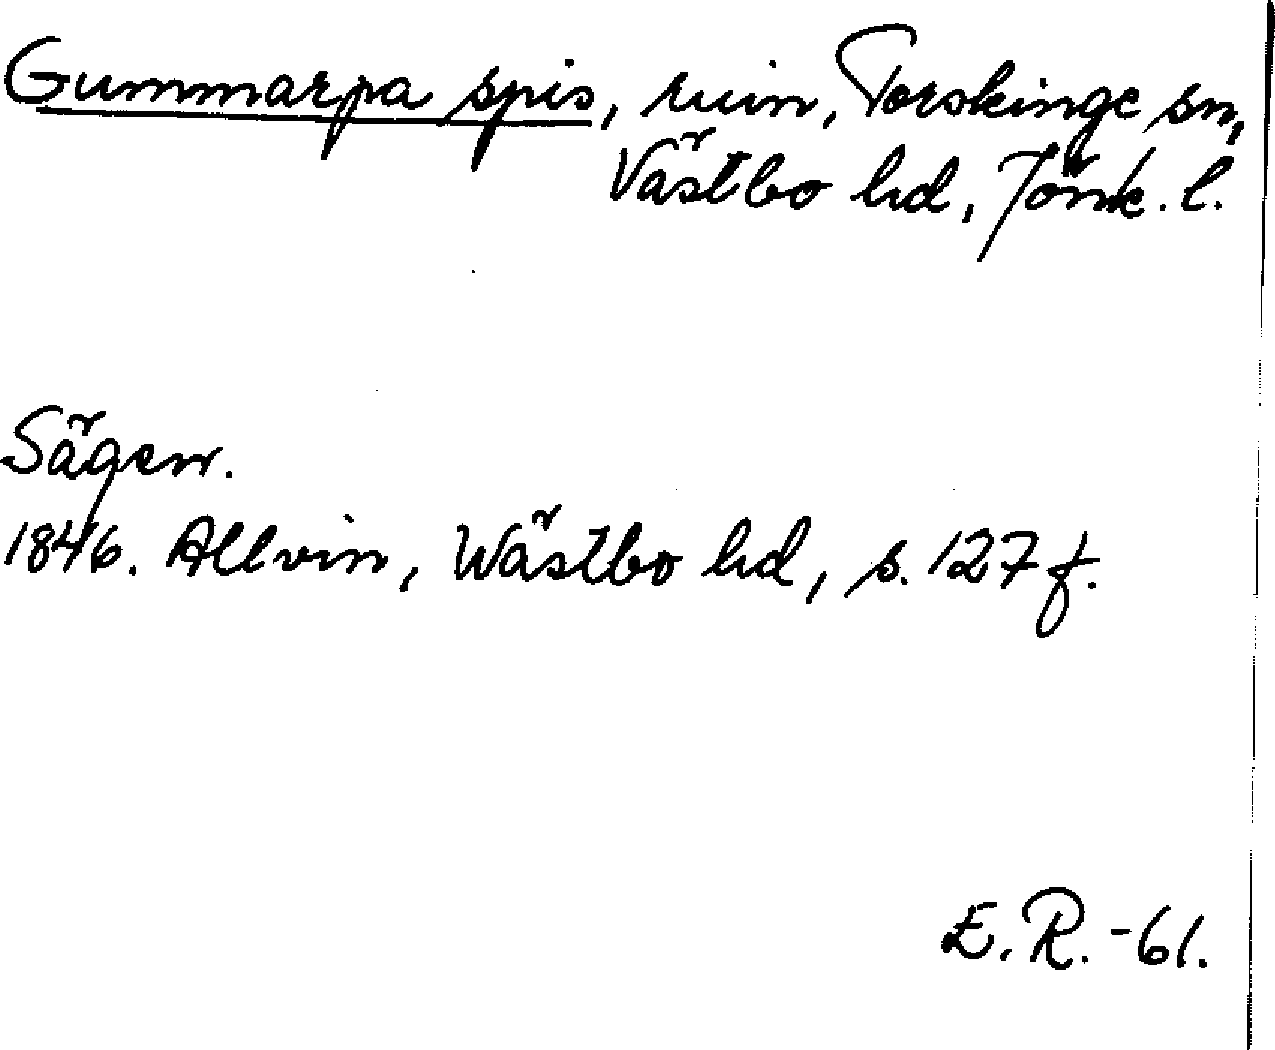 Gummarpa spis, ruin, Torskinge sn,
Västbo hd, Jönk. l.
Sägen.
1846. Allvin, Wästbo hd, s. 127 f.
E. R. -61.